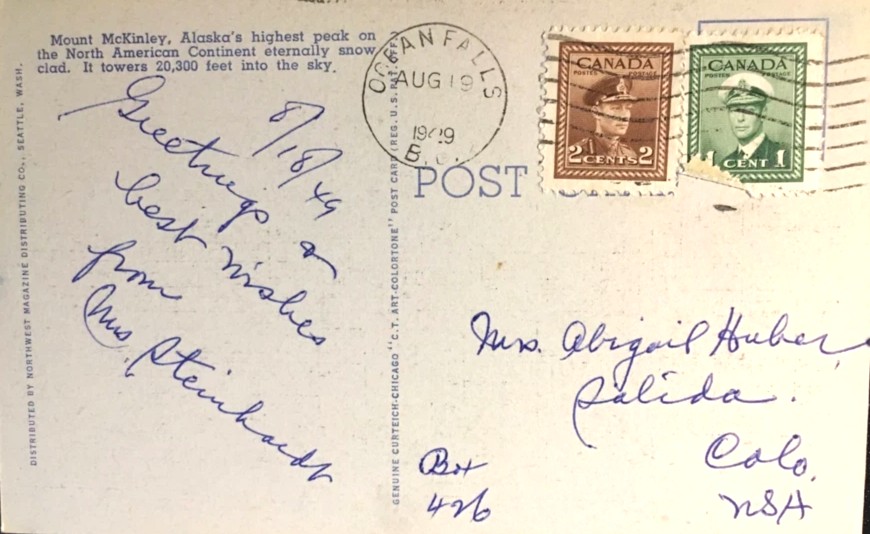 Mount McKinley, Alaska's highest peak on
the North American Continent eternally snow
clad. It towers 20,300 feet into the sky.
DISTRIBUTED BY NORTHWEST MAGAZINE DISTRIBUTING CO., SEATTLE, WASH.
8/18/49
Greetings &
best wishes
from
Mrs. Steinhardt
GENUINE CURTEICH-CHICAGO "C.T. ART-COLORTONE" POST CARD (REG. U.S. PAT. OFF.)
OCEAN FALLS
AUG 19
1949
B.C.
CANADA
POSTES POSTAGE
2 CENTS 2
CANADA
POSTES POSTAGE
1 CENT 1
POST
Mrs. Abigail Huber
Salida.
Colo.
USA
Box
426